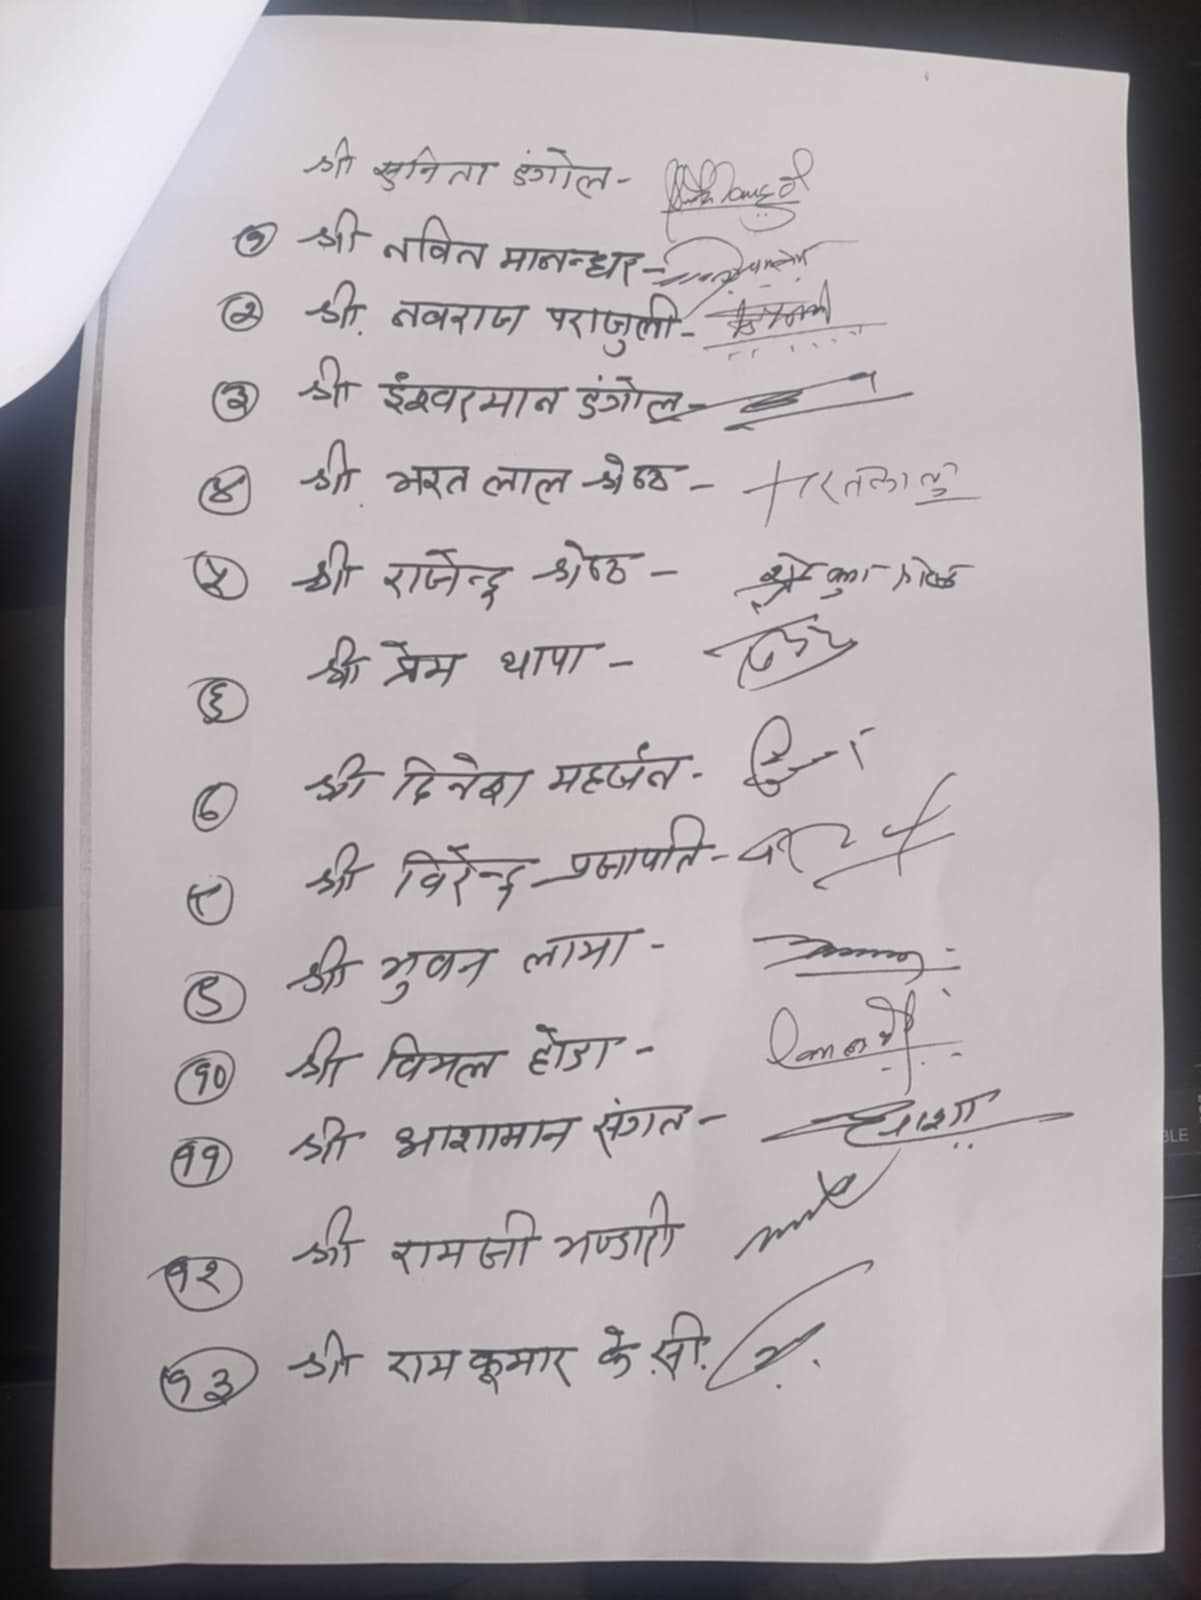 श्री सुनिता डंगोल -
१ श्री नविन मानन्धर -
२ श्री नवराज पराजुली -
३ श्री ईश्वरमान डंगोल -
४ श्री भरत लाल श्रेष्ठ - भरतलाल
५ श्री राजेन्द्र श्रेष्ठ -
६ श्री प्रेम थापा -
७ श्री दिनेश महर्जन -
८ श्री विरेन्द्र प्रजापति -
९ श्री भुवन लामा -
१० श्री विमल होडा -
११ श्री आशामान संगत - आशा
१२ श्री रामजी भण्डारी
१३ श्री रामकुमार के.सी.